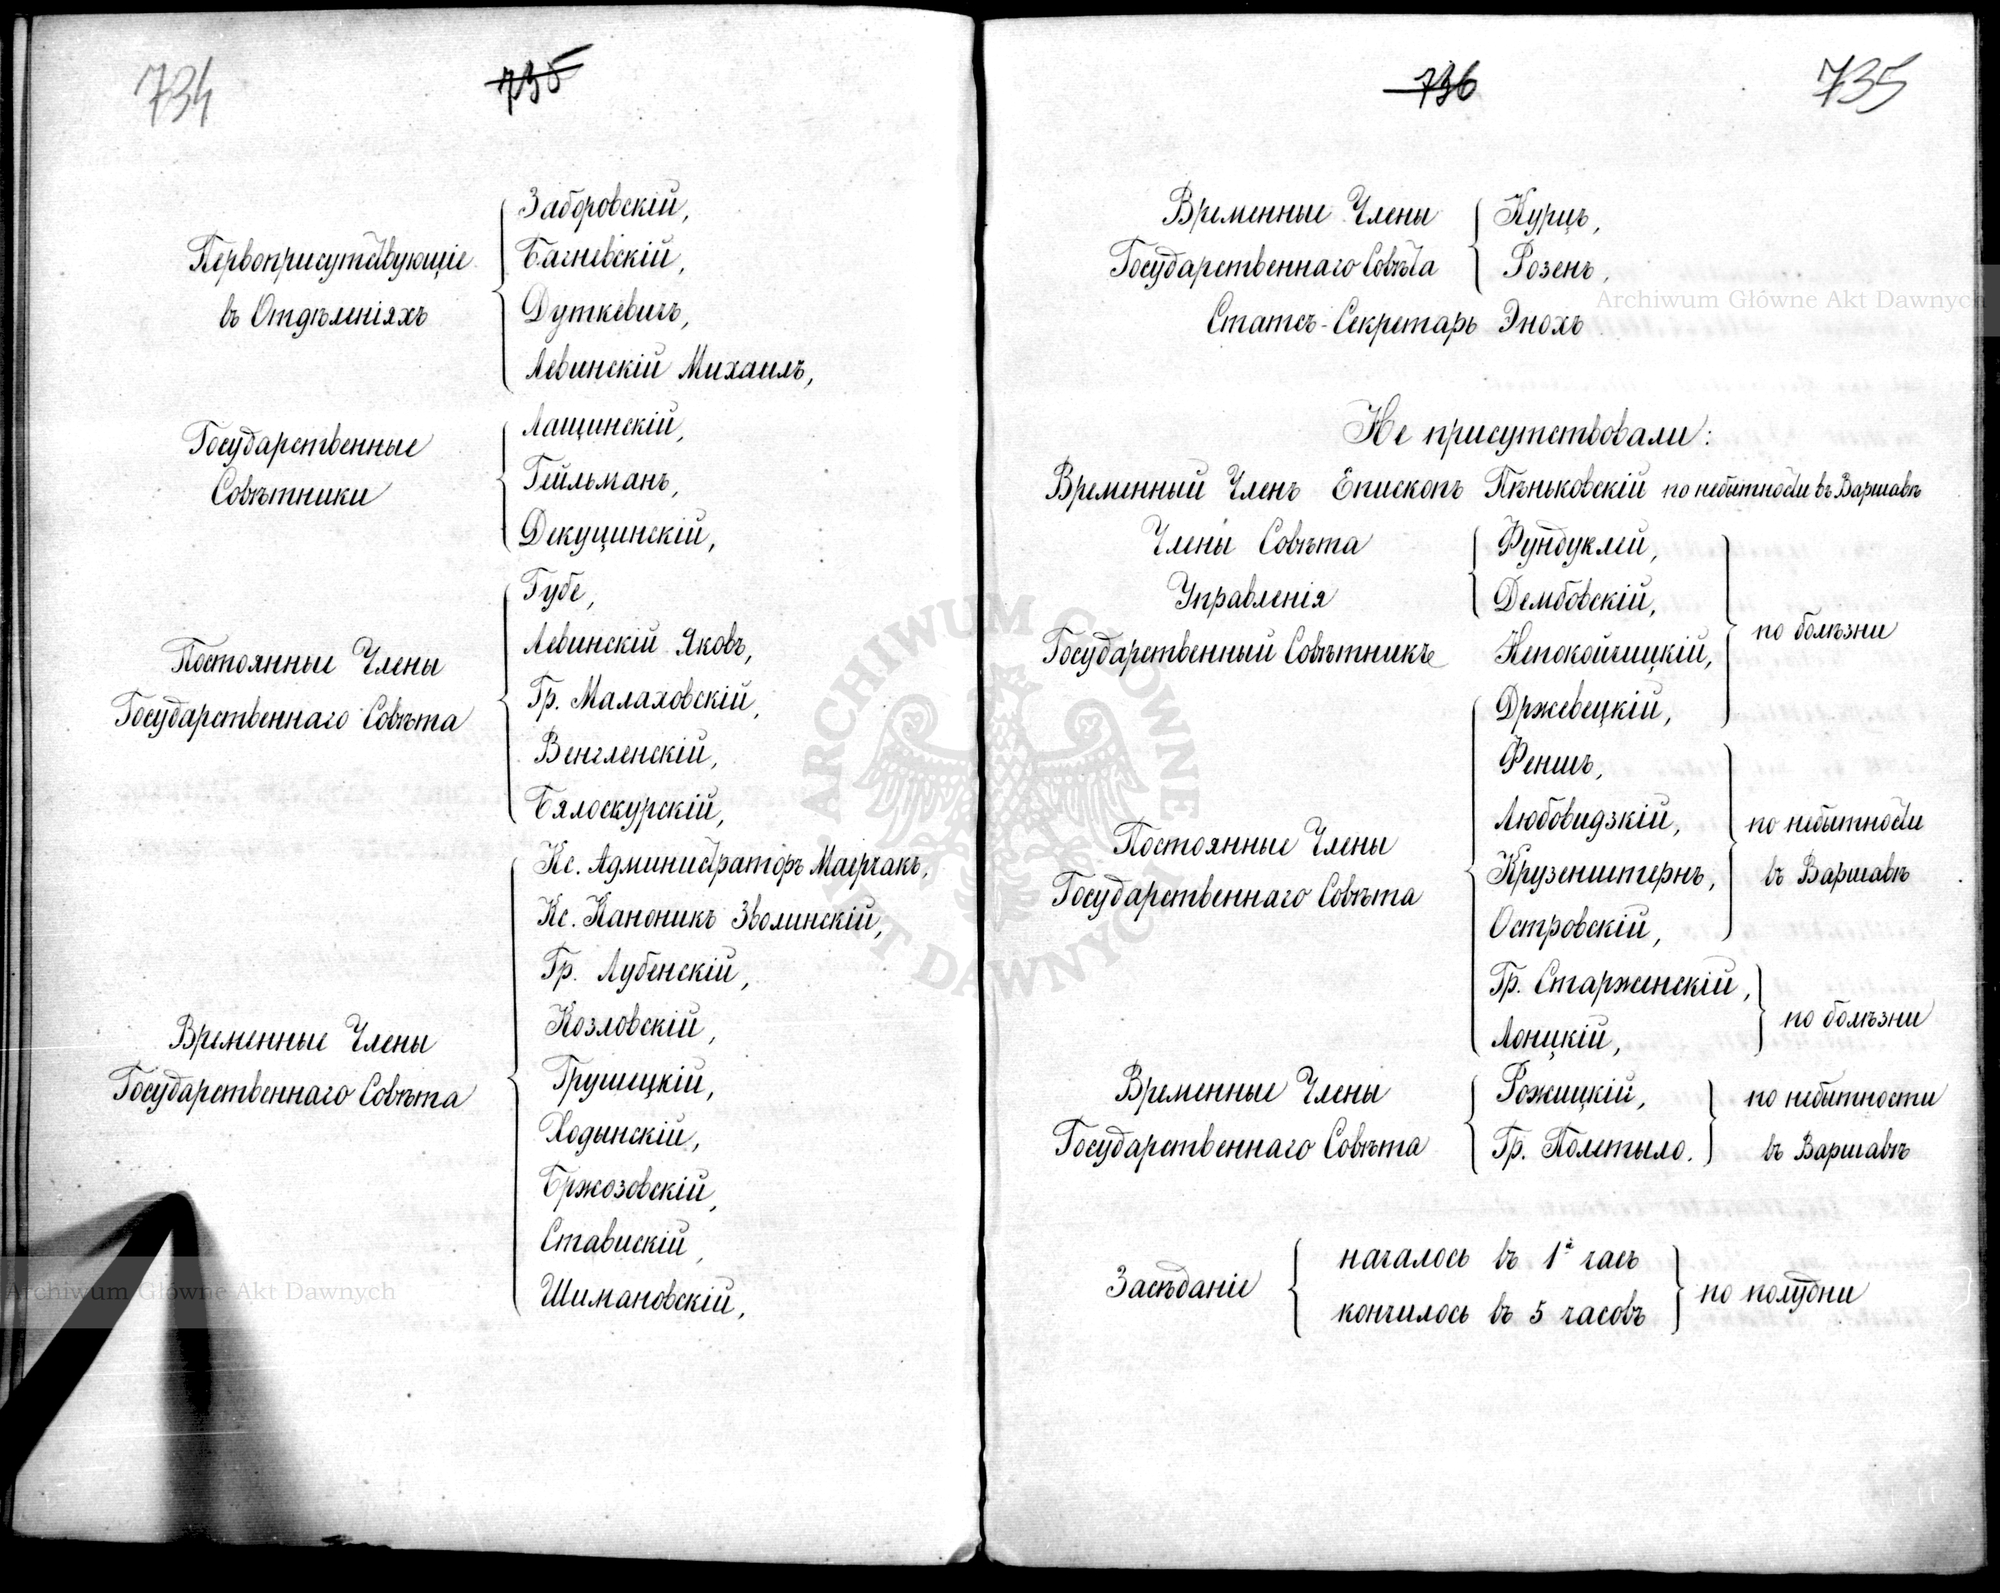 734
735
Первоприсутствующіе
въ Отдѣленіяхъ
Заборовскій,
Багневскій,
Дуткевичъ,
Левинскій Михаилъ,
Государственные
Совѣтники
Лащинскій,
Гейльманъ,
Декуцинскій,
Постоянные Члены
Государственнаго Совѣта
Губе,
Левинскій Яковъ,
Гр. Малаховскій,
Венгленскій,
Бялоскурскій,
Временные Члены
Государственнаго Совѣта
Кс. Администраторъ Маерчакъ,
Кс. Каноникъ Зволинскій,
Гр. Лубенскій,
Козловскій,
Грушецкій,
Ходынскій,
Бржозовскій,
Ставискій,
Шимановскій,
736
735
Временные Члены
Государственнаго Совѣта
Курцъ,
Розенъ,
Статсъ-Секретарь Энохъ
Не присутствовали:
Временный Членъ Епископъ Пѣньковскій по небытности въ Варшавѣ
Члены Совѣта
Управленія
Фундуклей,
Дембовскій,
Государственный Совѣтникъ Непокойчицкій,
Држевецкій,
по болѣзни
Постоянные Члены
Государственнаго Совѣта
Феншъ,
Любовидзкій,
Крузенштернъ,
Островскій,
по небытности
въ Варшавѣ
Гр. Старженскій,
Лонцкій,
по болѣзни
Временные Члены
Государственнаго Совѣта
Рожицкій,
Гр. Полетыло.
по небытности
въ Варшавѣ
Засѣданіе
началось въ 1ᵐ часъ
кончилось въ 5 часовъ
по полудни
Archiwum Główne Akt Dawnych
Archiwum Główne Akt Dawnych
ARCHIWUM GŁÓWNE AKT DAWNYCH